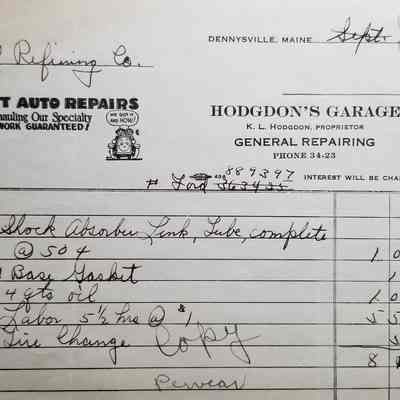 DENNYSVILLE, MAINE Sept
Refining Co.
T AUTO REPAIRS
hauling Our Specialty
WORK GUARANTEED!
WE GOT IT
AND HOW!
HODGDON'S GARAGE
K. L. HODGDON, PROPRIETOR
GENERAL REPAIRING
PHONE 34-23
889397
# Ford 363425 INTEREST WILL BE CHA
Shock Absorber Link, Tube, complete
@ 50¢ 1 0
1 Base Gasket
4 qts oil 1 0
Labor 5 1/2 hrs @ $1 5 5
Tire Change
Copy
8